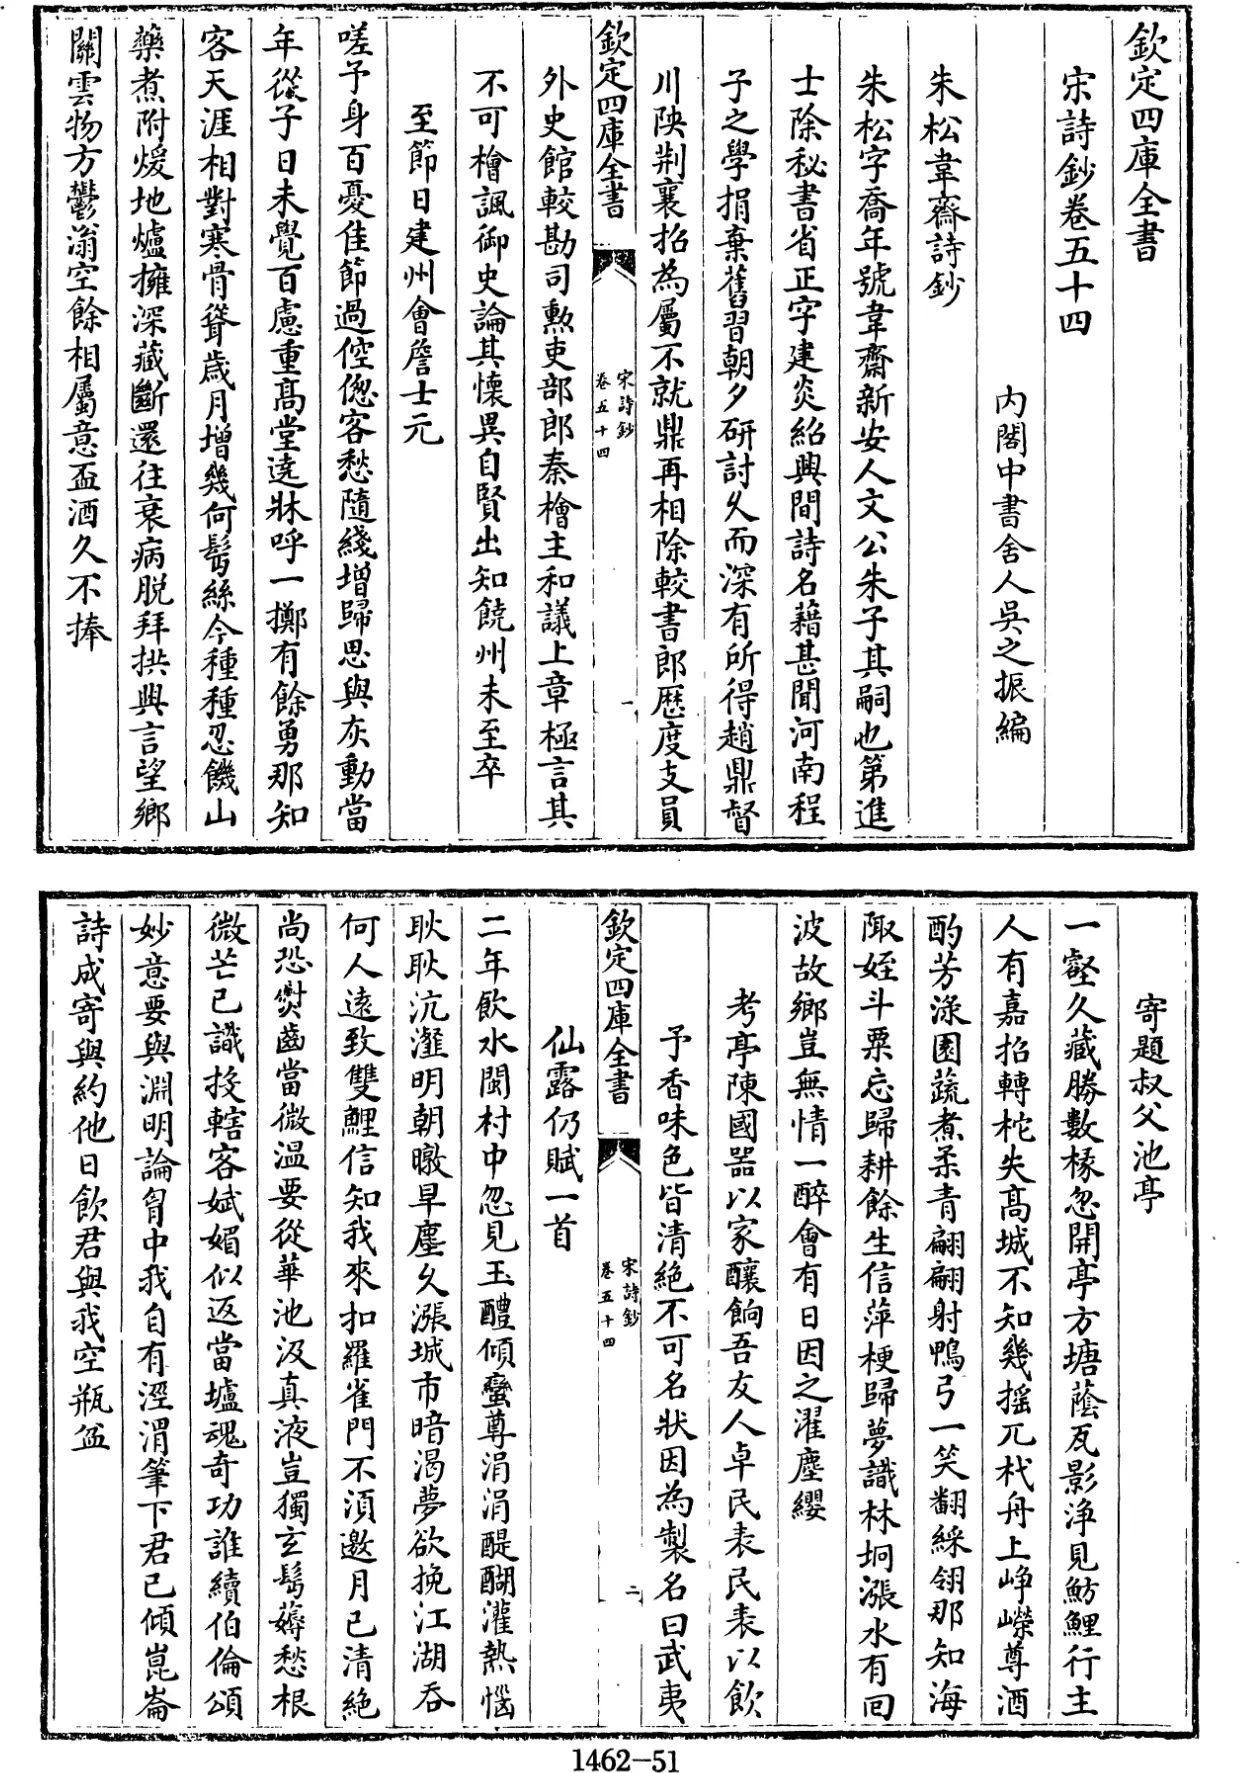 欽定四庫全書
宋詩鈔卷五十四
内閣中書舍人吳之振編
朱松韋齋詩鈔
朱松字喬年號韋齋新安人文公朱子其嗣也第進
士除秘書省正字建炎紹興間詩名藉甚聞河南程
子之學捐棄舊習朝夕研討久而深有所得趙鼎督
川陜荆襄招為屬不就鼎再相除較書郎歴度支員
欽定四庫全書
宋詩鈔
卷五十四
一
外史館較勘司勲吏部郎秦檜主和議上章極言其
不可檜諷御史論其懷異自賢出知饒州未至卒
至節日建州會詹士元
嗟予身百憂佳節過倥偬客愁隨綫增歸思與灰動當
年從子日未覺百慮重髙堂遶牀呼一擲有餘勇那知
客天涯相對寒骨聳歲月增幾何髩絲今種種忍饑山
藥煮附煖地爐擁深藏斷還往衰病脱拜拱興言望鄉
關雲物方鬱滃空餘相屬意盃酒久不捧
寄題叔父池亭
一壑久藏勝數椽忽開亭方塘蔭瓦影浄見魴鯉行主
人有嘉招轉柁失髙城不知幾摇兀杙舟上崢嶸尊酒
酌芳渌園蔬煮柔青翩翩射鴨弓一笑翻綵翎那知海
陬姪斗粟忘歸耕餘生信萍梗歸夢識林坰漲水有回
波故鄉豈無情一醉會有日因之濯塵纓
考亭陳國器以家釀餉吾友人卓民表民表以飲
予香味色皆清絶不可名狀因為製名曰武夷
欽定四庫全書
宋詩鈔
卷五十四
二
仙露仍賦一首
二年飲水閩村中忽見玉醴傾蠻尊涓涓醍醐灌熱惱
耿耿沆瀣明朝暾早塵久漲城市暗渴夢欲挽江湖吞
何人遠致雙鯉信知我來扣羅雀門不須邀月已清絶
尚恐爕齒當微温要從華池汲真液豈獨玄髩薅愁根
微芒已識投轄客娬媚似返當壚魂竒功誰續伯倫頌
妙意要與淵明論胷中我自有涇渭筆下君已傾崑崙
詩成寄與約他日飲君與我空瓶盆
1462-51